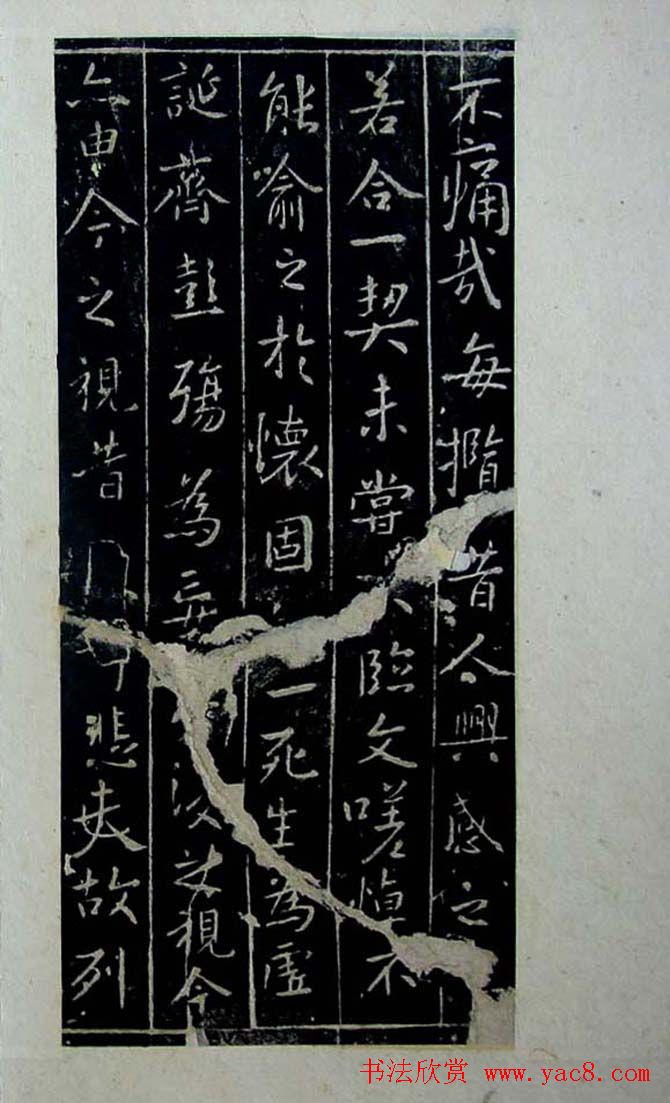 不痛哉每攬昔人興感之
若合一契未嘗臨文嗟悼不
能喻之於懷固一死生為虛
誕齊彭殤為妄後之視今
亦由今之視昔悲夫故列
书法欣赏 www.yac8.com